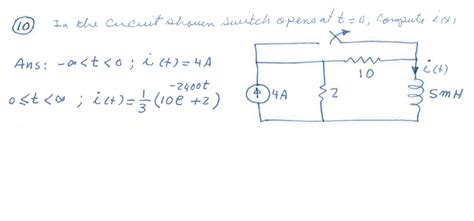 10 In the circuit shown switch opens at t=0, Compute i(t)
Ans: -∞<t<0 ; i(t)=4A
0≤t<∞ ; i(t)=1/3(10e^-2400t+2)
10
i(t)
4A
2
5mH